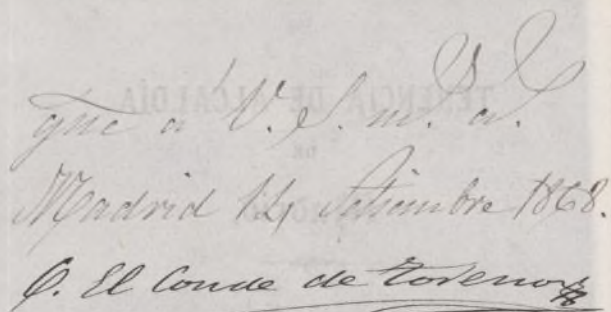 que á V. S. m. a.
Madrid 14 Setiembre 1868.
El Conde de Toreno